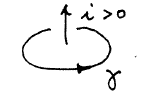 i > 0
γ